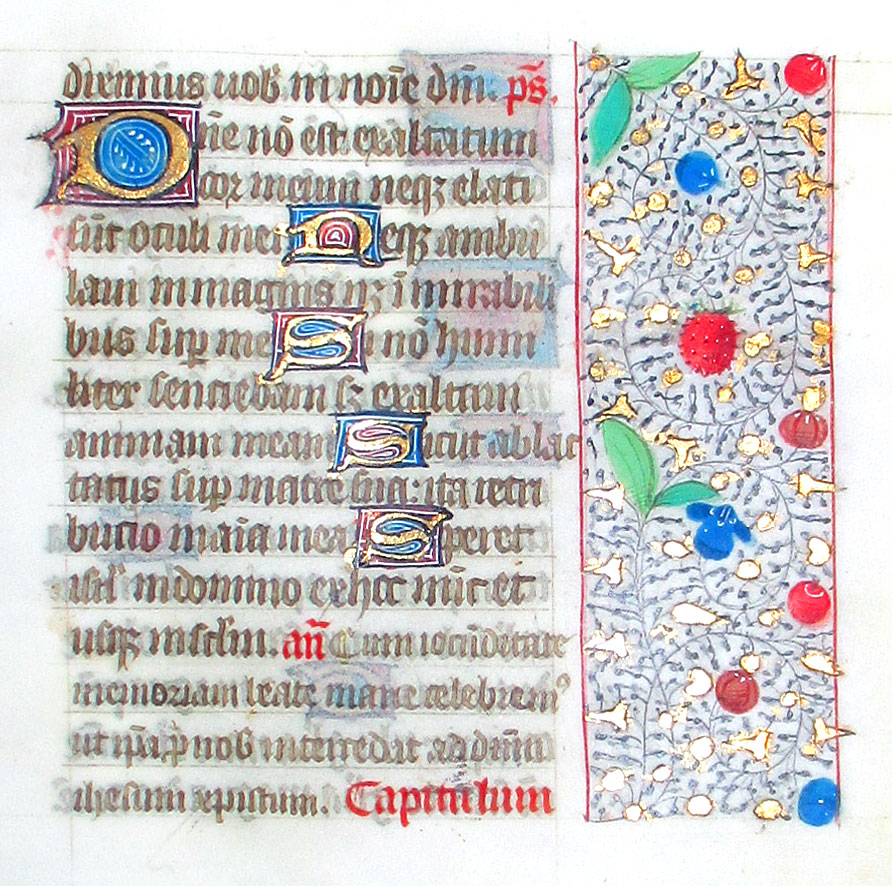 diximus uob̅ in noi̅e dn̅i. ps̅.
Dn̅e no̅ est exaltatum
cor meum neqꝫ elati
su̅t oculi mei Neqꝫ ambu
laui in magnis nꝫ i̅ mirabili
bus sup̱ me Si no̅ humi
liter senciebam sꝫ exaltaui
animam meam Sicut ablac
tatus sup̱ matre sua: ita retri
bucio i̅ ai̅a mea Speret
isrl̅ in domino ex hoc nu̅c et
usqꝫ in sc̅lm̅. an̅ Cum iocu̅ditate
memoriam beate marie celebrem⁹
ut ip̅a p̱ nob̅ intercedat ad dn̅m
ihesum xpistum. Capitulum